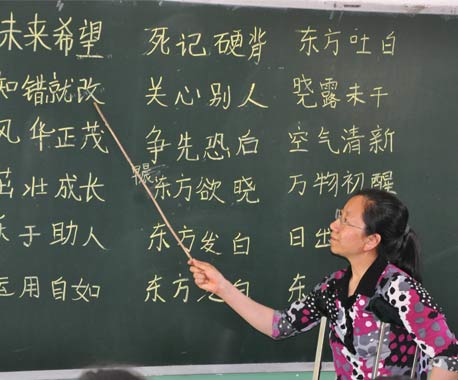 未来希望 死记硬背 东方吐白
知错就改 关心别人 晓露未干
风华正茂 争先恐后 空气清新
茁壮成长 东方欲晓 万物初醒
乐于助人 东方发白 日出
运用自如 东方 白 东